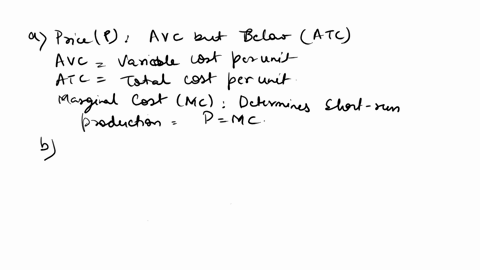 a) Price (P) : AVC but Below (ATC)
AVC = Variable cost per unit
ATC = Total cost per unit.
Marginal Cost (MC) : Determines Short-run
production = P = MC.
b)